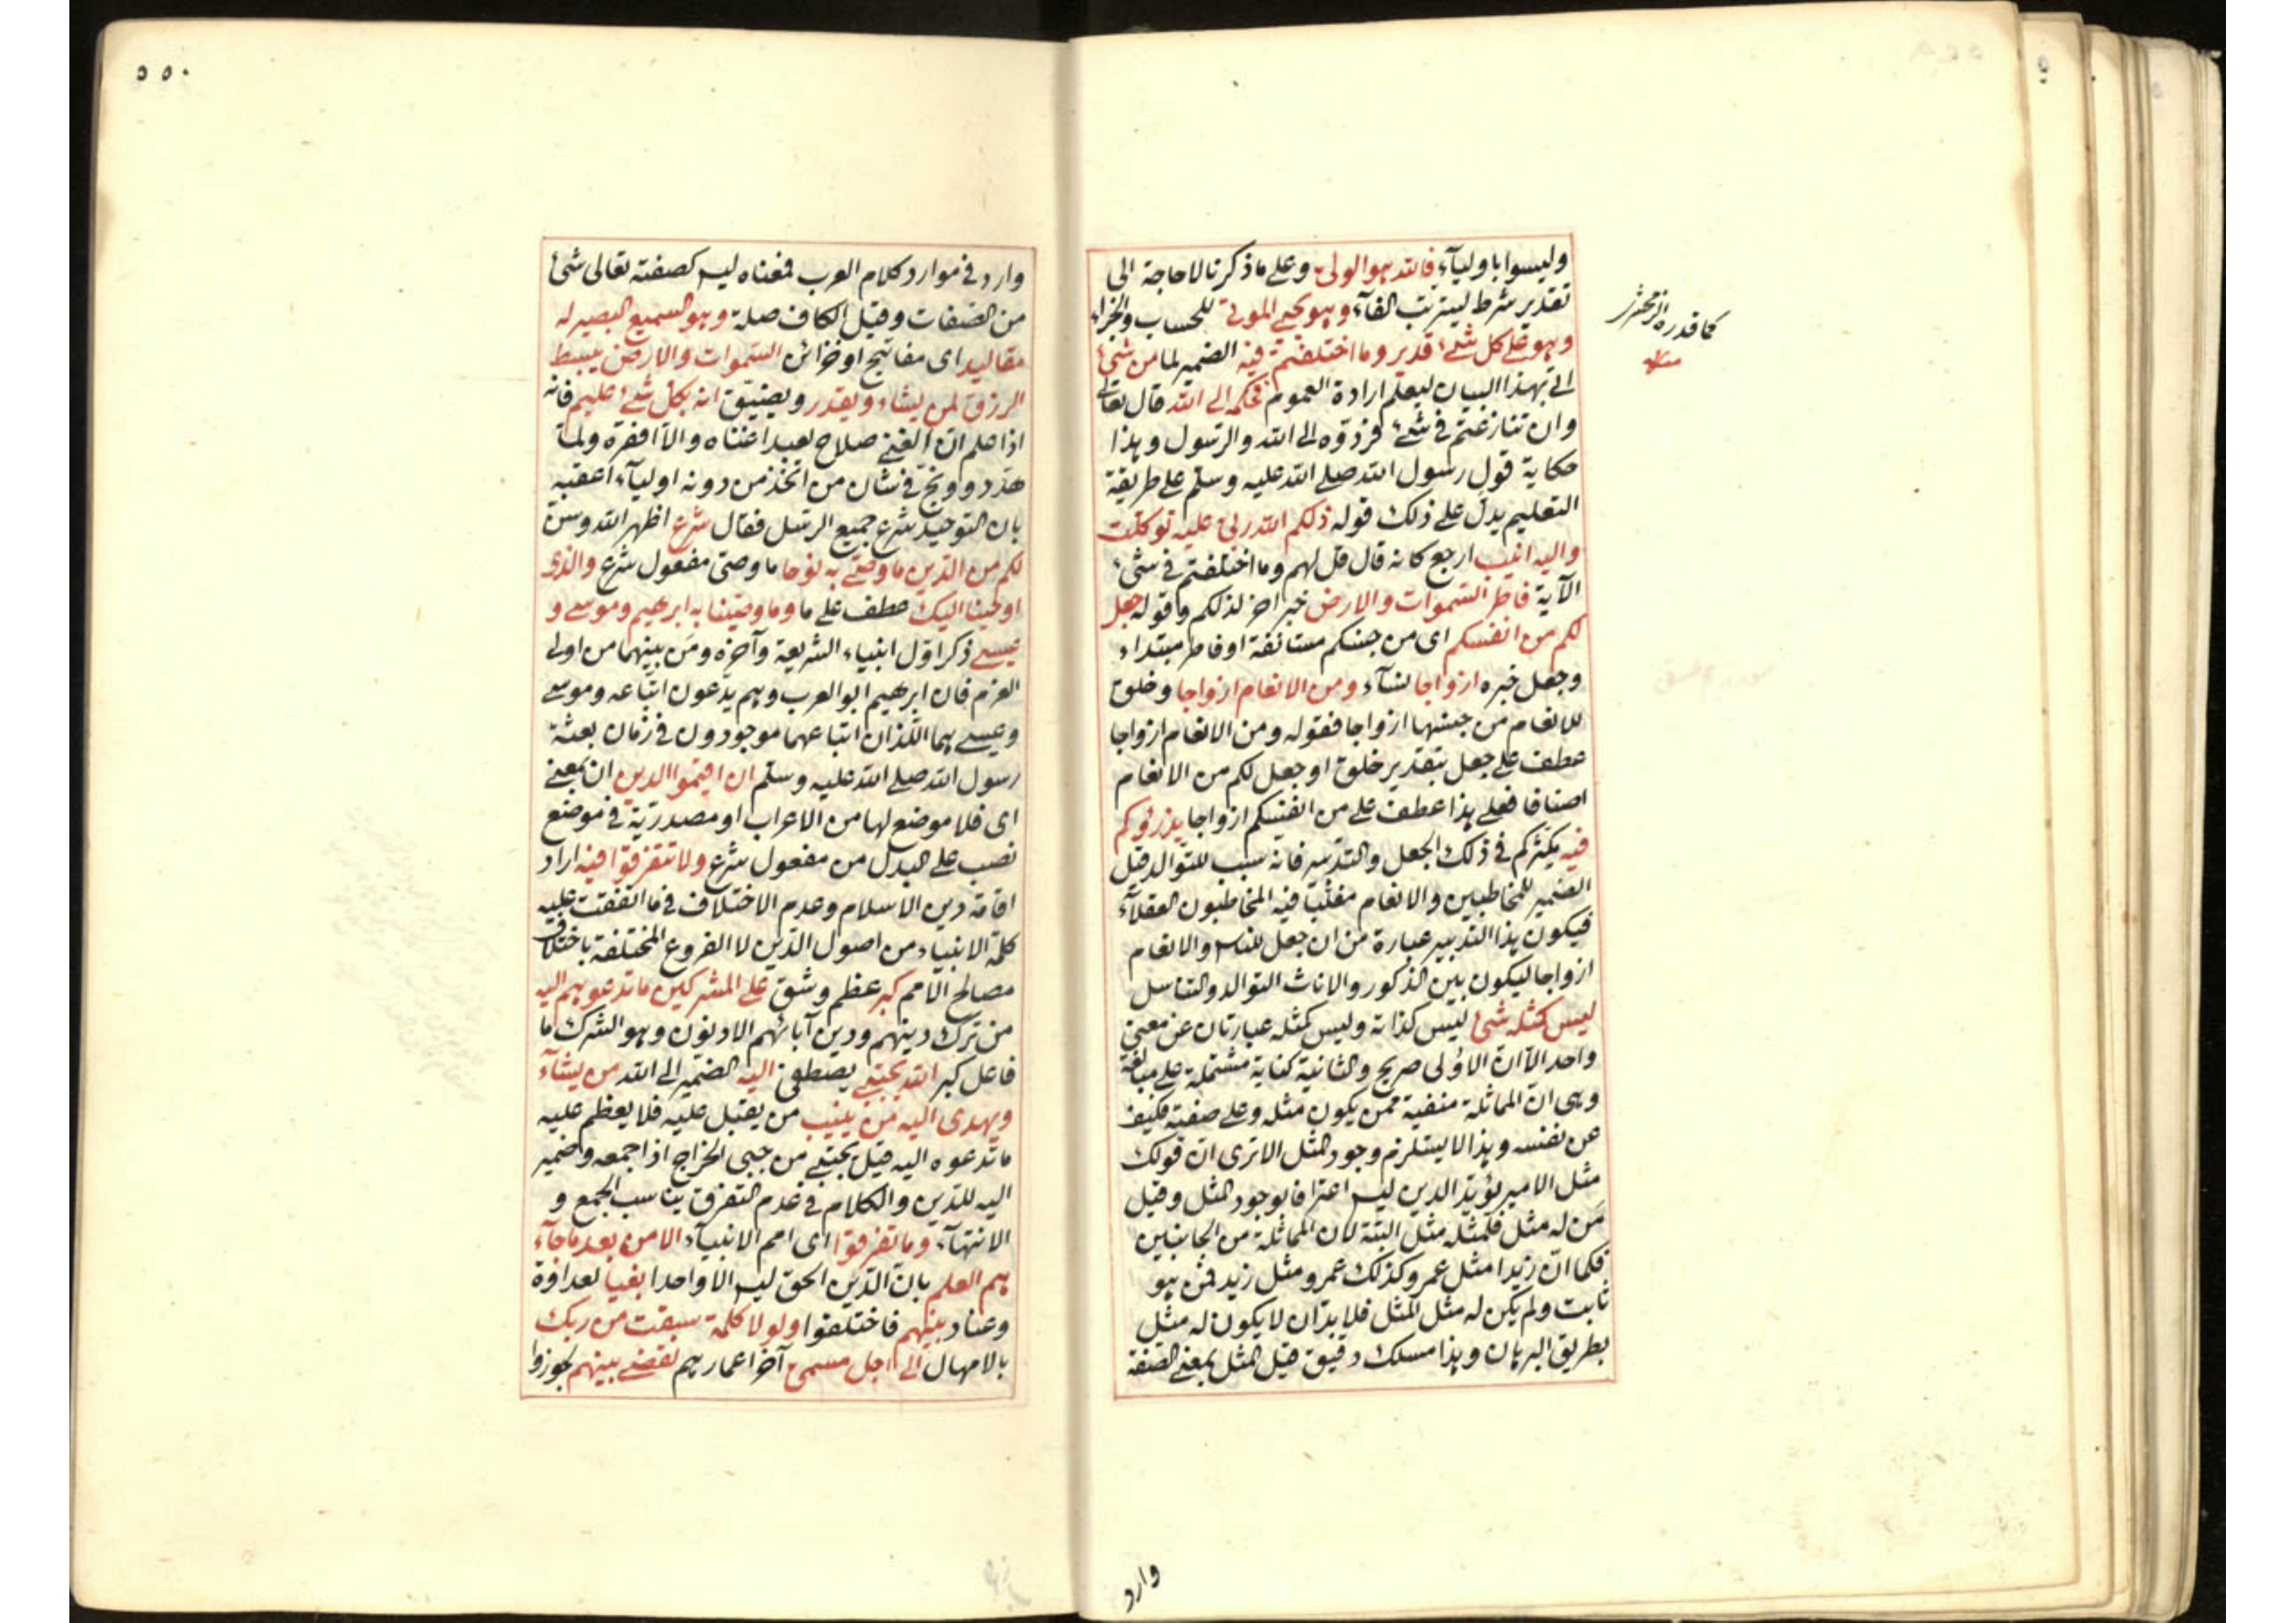 وليسوا باولياء فالله هو الولى وعلى ما ذكرنا لا حاجة الى
تقدير شرط ليترتب الفاء وهو يحيى الموتى للحساب والجزاء
وهو على كل شئ قدير وما اختلفتم فيه الضمير لما من شئ
اتى بهذا البيان ليعلم ارادة العموم فحكمه الى الله قال تعالى
وان تنازعتم فى شئ فردّوه الى الله والرسول وهذا
حكاية قول رسول الله صلى الله عليه وسلم على طريقة
التعليم يدل على ذلك قوله ذلكم الله ربى عليه توكلت
واليه انيب ارجع كانه قال قل لهم وما اختلفتم فى شئ
الآية فاطر السموات والارض خبر اخر لذلكم وقوله جعل
لكم من انفسكم اى من جنسكم مستانفة او فاطر مبتداء
وجعل خبره ازواجا نساء ومن الانعام ازواجا وخلق
للانعام من جنسها ازواجا فقوله ومن الانعام ازواجا
عطف على جعل بتقدير خلق او جعل لكم من الانعام
اصنافا فعلى هذا عطف على من انفسكم ازواجا يذرؤكم
فيه يكثركم فى ذلك الجعل والتدبير فانه سبب للتوالد قيل
الضمير للمخاطبين والانعام مغلّبا فيه المخاطبون العقلاء
فيكون هذا التدبير عبارة من ان جعل للناس والانعام
ازواجا ليكون بين الذكور والاناث التوالد والتناسل
ليس كمثله شئ ليس كذاته وليس كمثله عبارتان عن معنى
واحد الا ان الاولى صريح والثانية كناية مشتملة على مبالغة
وهى ان المماثلة منفية ممن يكون مثله وعلى صفته فكيف
عن نفسه وهذا لا يستلزم وجود المثل الا ترى ان قولك
مثل الامير يؤيد الدين ليس اعترافا بوجود المثل وقيل
من له مثل فلمثله مثل البتة لان المماثلة من الجانبين
فكما ان زيدا مثل عمرو كذلك عمرو مثل زيد فمن هو
ثابت ولم يكن له مثل المثل فلا بد ان لا يكون له مثل
بطريق البرهان وهذا مسلك دقيق قيل المثل بمعنى الصفة
كما قدره الزمخشرى
منه
وارد
٥٥٠
وارد فى موارد كلام العرب فمعناه ليس كصفته تعالى شئ
من الصفات وقيل الكاف صلة وهو السميع البصير له
مقاليد اى مفاتيح او خزائن السموات والارض يبسط
الرزق لمن يشاء ويقدر ويضيّق انه بكل شئ عليم فانه
اذا علم ان الغنى صلاح لعبد اغناه والا افقره ولما
هدّد ووبّخ فى شان من اتخذ من دونه اولياء اعقبه
بان التوحيد شرع جميع الرسل فقال شرع اظهر الله وسن
لكم من الدين ما وصّى به نوحا ما وصى مفعول شرع والذى
اوحينا اليك عطف على ما وما وصينا به ابرهيم وموسى و
عيسى ذكر اوّل انبياء الشريعة وآخره ومن بينهما من اولى
العزم فان ابرهيم ابو العرب وهم يدّعون اتباعه وموسى
وعيسى هما اللذان اتباعهما موجودون فى زمان بعثة
رسول الله صلى الله عليه وسلم ان اقيموا الدين ان بمعنى
اى فلا موضع لها من الاعراب او مصدريّة فى موضع
نصب على البدل من مفعول شرع ولا تتفرقوا فيه اراد
اقامة دين الاسلام وعدم الاختلاف فى ما اتفقت عليه
كلمة الانبياء من اصول الدين لا الفروع المختلفة باختلاف
مصالح الامم كبر عظم وشق على المشركين ما تدعوهم اليه
من ترك دينهم ودين آبائهم الادنون وهو الشرك ما
فاعل كبر الله يجتبى يصطفى اليه الضمير الى الله من يشاء
ويهدى اليه من ينيب من يقبل عليه فلا يعظم عليه
ما تدعوه اليه قيل يجتبى من جبى الخراج اذا جمعه وضمير
اليه للدين والكلام فى عدم التفرق يناسب الجمع و
الانتهاء وما تفرقوا اى امم الانبياء الا من بعد ما جاء
هم العلم بان الدين الحق ليس الا واحدا بغيا لعداوة
وعناد بينهم فاختلفوا ولولا كلمة سبقت من ربك
بالامهال الى اجل مسمى آخر اعمارهم لقضى بينهم لجوزوا